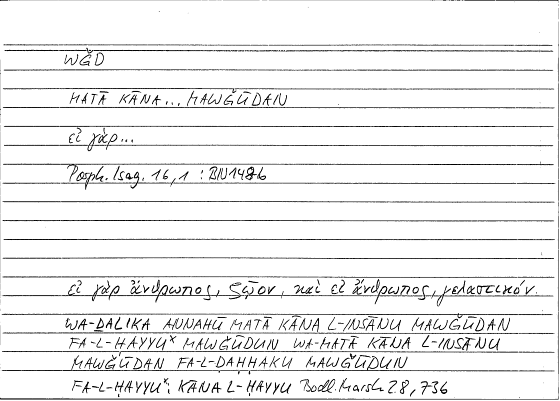 WĞD
MATĀ KĀNA... MAWĞŪDAN
εἰ γὰρ...
Porph. Isag. 16,1 : BN148b
εἰ γὰρ ἄνθρωπος, ζῷον, καὶ εἰ ἄνθρωπος, γελαστικόν.
WA-ḎALIKA ANNAHŪ MATĀ KĀNA L-INSĀNU MAWĞŪDAN
FA-L-ḤAYYU* MAWĞŪDUN WA-MATĀ KĀNA L-INSĀNU
MAWĞŪDAN FA-L-ḌAḤḤAKU MAWĞŪDUN
FA-L-ḤAYYU*: KĀNA L-ḤAYYU Bodl. Marsh 28, 73b